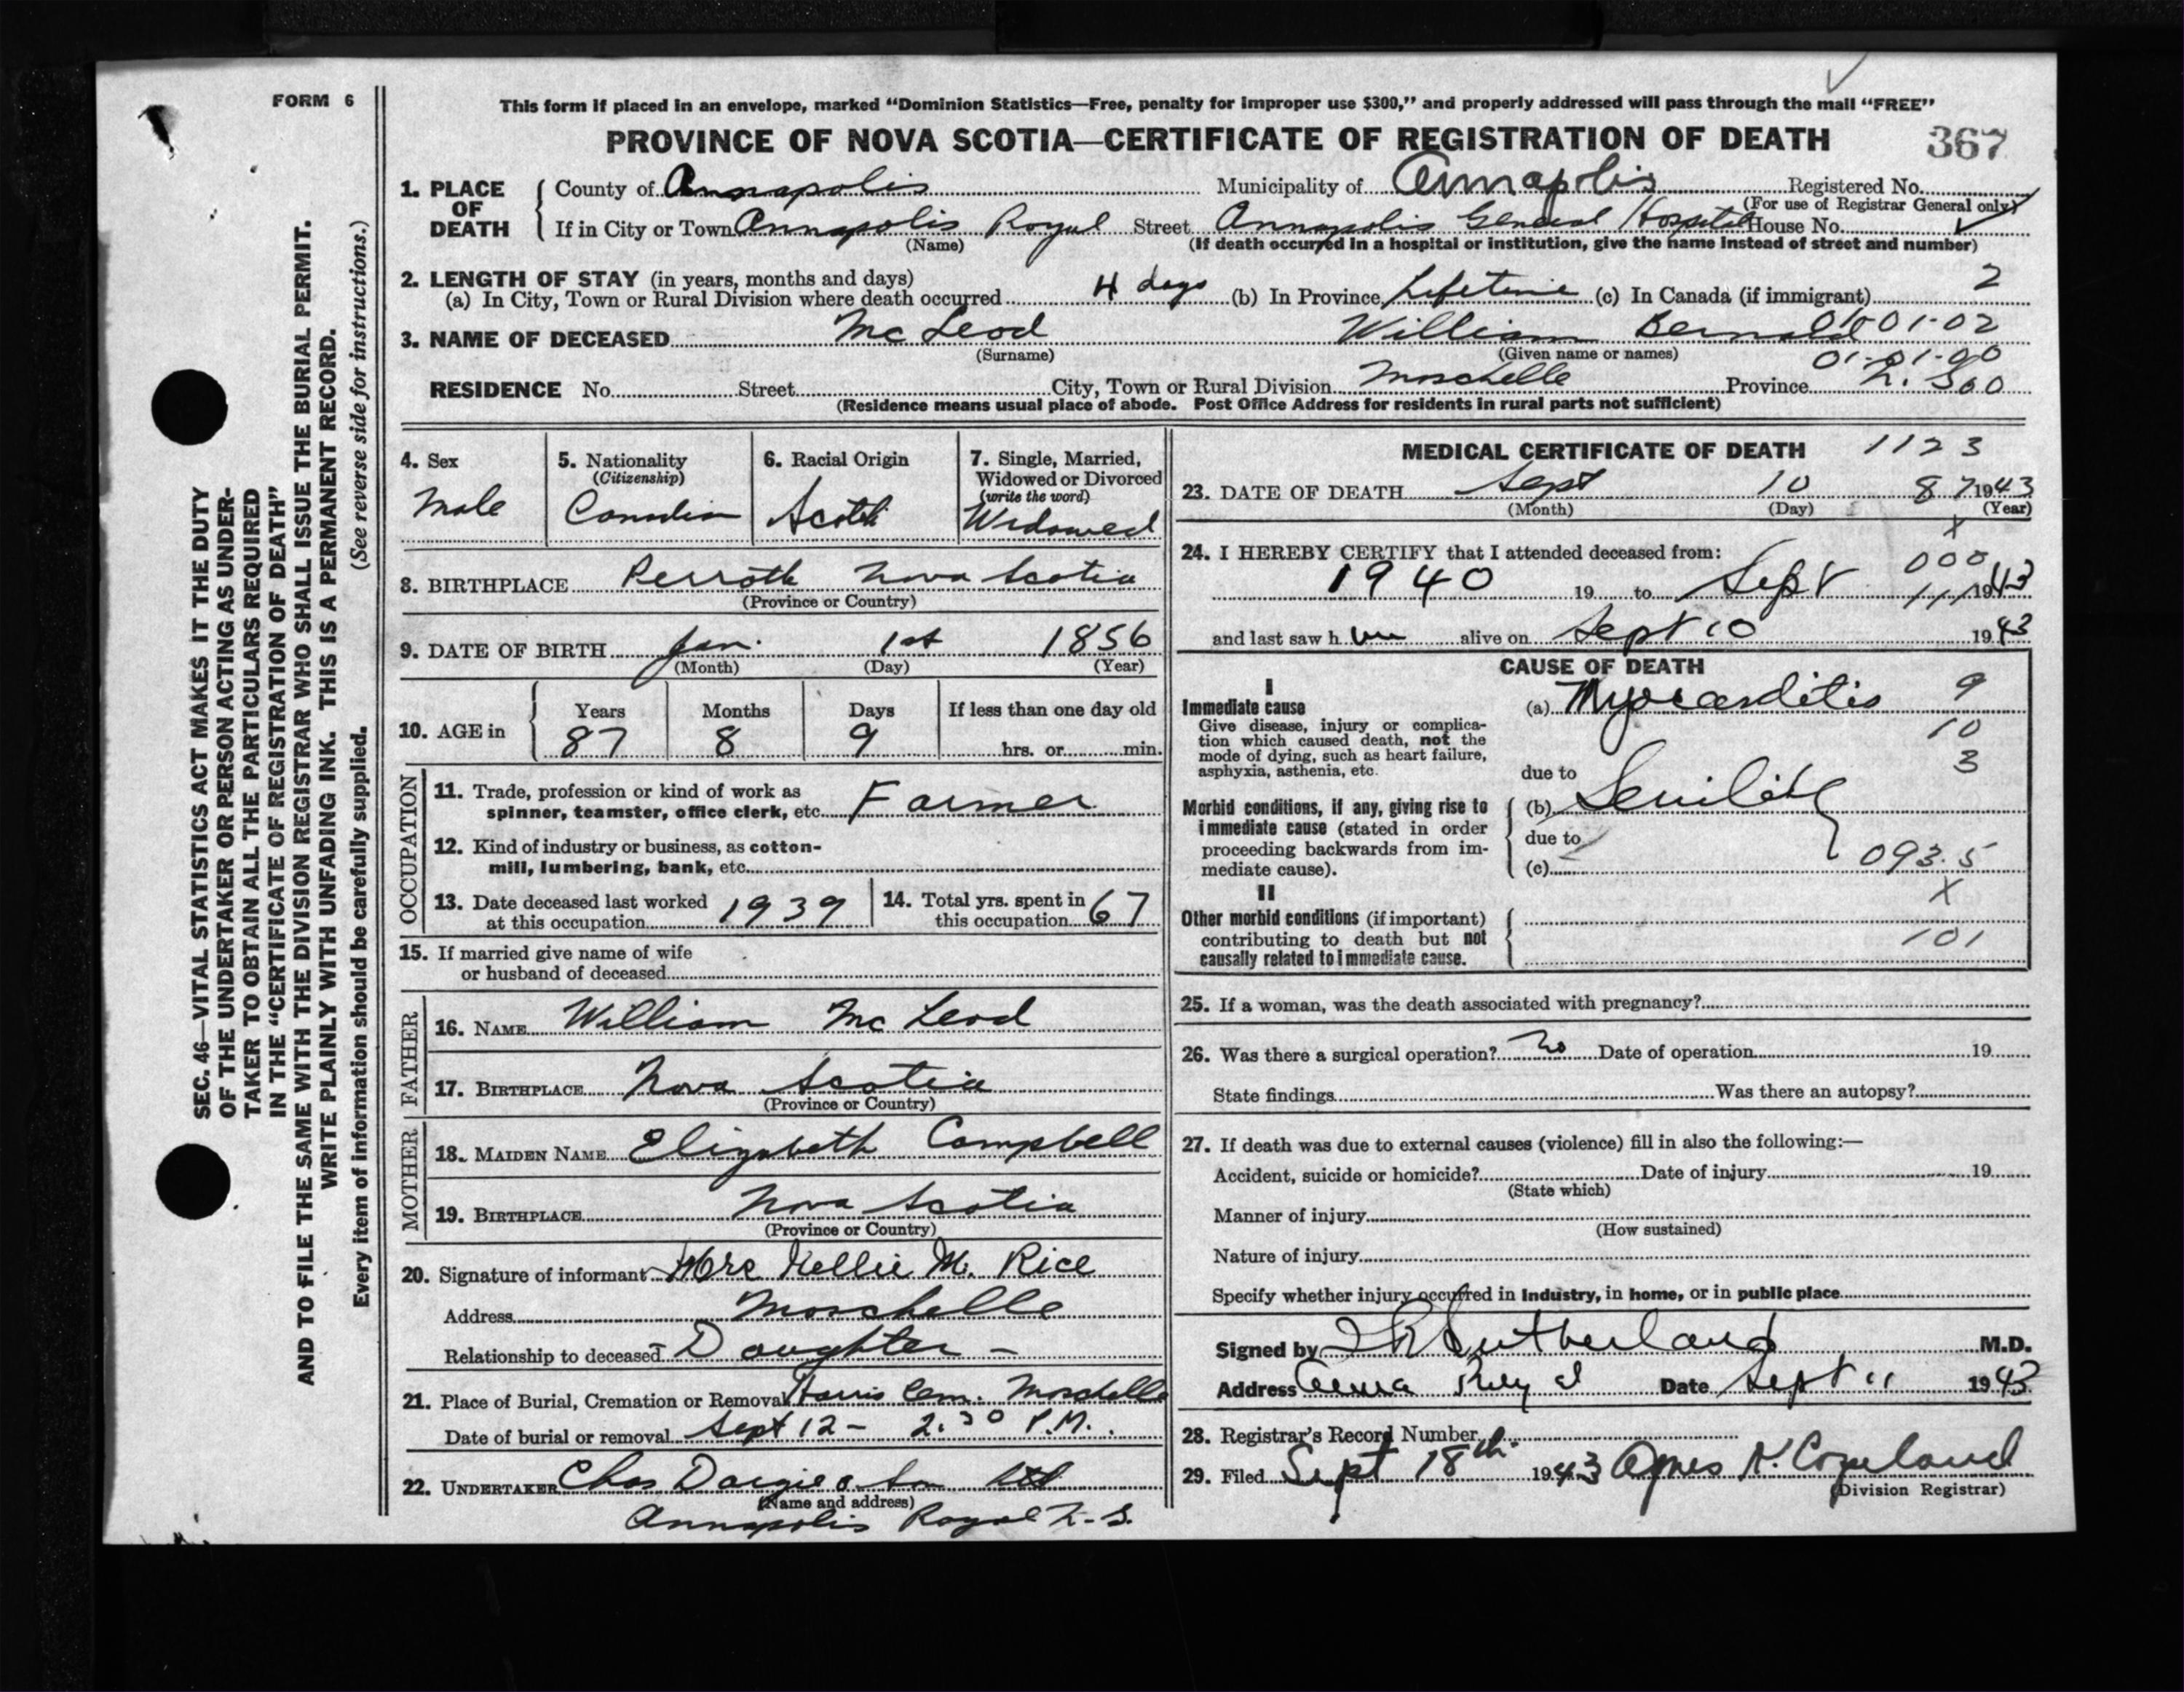 FORM 6
This form if placed in an envelope, marked "Dominion Statistics—Free, penalty for improper use $300," and properly addressed will pass through the mail "FREE"
PROVINCE OF NOVA SCOTIA—CERTIFICATE OF REGISTRATION OF DEATH
367
1. PLACE OF DEATH
County of Annapolis Municipality of Annapolis Registered No.
(For use of Registrar General only)
If in City or Town Annapolis Royal Street Annapolis General Hospital House No.
(Name) (If death occurred in a hospital or institution, give the name instead of street and number)
2. LENGTH OF STAY (in years, months and days)
(a) In City, Town or Rural Division where death occurred 4 days (b) In Province Lifetime (c) In Canada (if immigrant) 2
3. NAME OF DECEASED McLeod William Bernold 01-01-02
(Surname) (Given name or names) 01-01-00
RESIDENCE No. Street City, Town or Rural Division Moschelle Province N. S.
(Residence means usual place of abode. Post Office Address for residents in rural parts not sufficient)
4. Sex
Male
5. Nationality
(Citizenship)
Canadian
6. Racial Origin
Scotch
7. Single, Married,
Widowed or Divorced
(write the word)
Widowed
8. BIRTHPLACE Perrotte Nova Scotia
(Province or Country)
9. DATE OF BIRTH Jan. 1st 1856
(Month) (Day) (Year)
10. AGE in
Years Months Days If less than one day old
87 8 9 hrs. or min.
OCCUPATION
11. Trade, profession or kind of work as
spinner, teamster, office clerk, etc. Farmer
12. Kind of industry or business, as cotton-
mill, lumbering, bank, etc.
13. Date deceased last worked
at this occupation 1939
14. Total yrs. spent in
this occupation 67
15. If married give name of wife
or husband of deceased
FATHER
16. NAME William McLeod
17. BIRTHPLACE Nova Scotia
(Province or Country)
MOTHER
18. MAIDEN NAME Elizabeth Campbell
19. BIRTHPLACE Nova Scotia
(Province or Country)
20. Signature of informant Mrs Nellie M. Rice
Address Moschelle
Relationship to deceased - Daughter -
21. Place of Burial, Cremation or Removal Harris Cem. Moschelle
Date of burial or removal Sept 12 - 2.30 P.M.
22. UNDERTAKER Chas Dargie & Son Ltd
(Name and address)
Annapolis Royal N.S.
MEDICAL CERTIFICATE OF DEATH 1123
23. DATE OF DEATH Sept 10 87 1943
(Month) (Day) (Year)
X
24. I HEREBY CERTIFY that I attended deceased from:
000
1940 19 to Sept 111 1943
and last saw h im alive on Sept 10 1943
CAUSE OF DEATH
I
Immediate cause
Give disease, injury or complica-
tion which caused death, not the
mode of dying, such as heart failure,
asphyxia, asthenia, etc.
(a) Myocarditis 9
10
3
due to
Morbid conditions, if any, giving rise to
immediate cause (stated in order
proceeding backwards from im-
mediate cause).
(b) Senility
due to
(c) 093.5
X
II
Other morbid conditions (if important)
contributing to death but not
causally related to immediate cause.
101
25. If a woman, was the death associated with pregnancy?
26. Was there a surgical operation? No Date of operation 19
State findings Was there an autopsy?
27. If death was due to external causes (violence) fill in also the following:—
Accident, suicide or homicide? Date of injury 19
(State which)
Manner of injury
(How sustained)
Nature of injury
Specify whether injury occurred in industry, in home, or in public place
Signed by Sutherland M.D.
Address Anna Royal Date Sept 11 1943
28. Registrar's Record Number
29. Filed Sept 18th 1943 Agnes K. Copeland
(Division Registrar)
SEC. 46—VITAL STATISTICS ACT MAKES IT THE DUTY
OF THE UNDERTAKER OR PERSON ACTING AS UNDER-
TAKER TO OBTAIN ALL THE PARTICULARS REQUIRED
IN THE "CERTIFICATE OF REGISTRATION OF DEATH"
AND TO FILE THE SAME WITH THE DIVISION REGISTRAR WHO SHALL ISSUE THE BURIAL PERMIT.
WRITE PLAINLY WITH UNFADING INK. THIS IS A PERMANENT RECORD.
Every item of information should be carefully supplied. (See reverse side for instructions.)